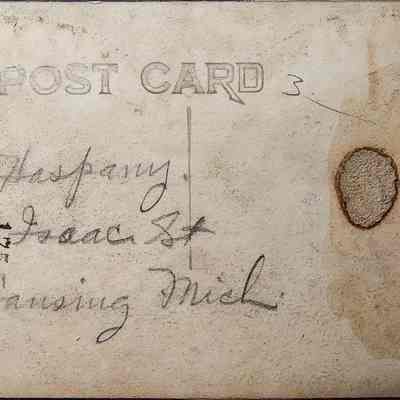 POST CARD
3
Haspany.
Isaac St
ansing Mich.